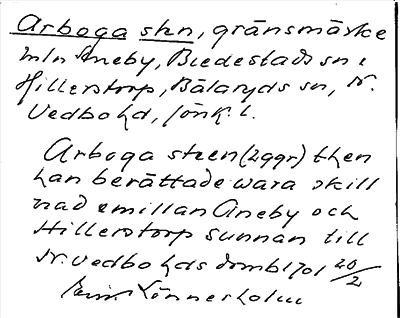 Arboga sten, gränsmärke
mln Aneby, Bredestads sn o
Hillerstorp, Bälaryds sn, N.
Vedbo hd, Jönk. l.
Arboga steen (2 ggr) then
han berättade wara skill
nad emillan Aneby och
Hillerstorp sunnan till
N. Vedbo hds dombl 1701 20/2
Lönnerholm